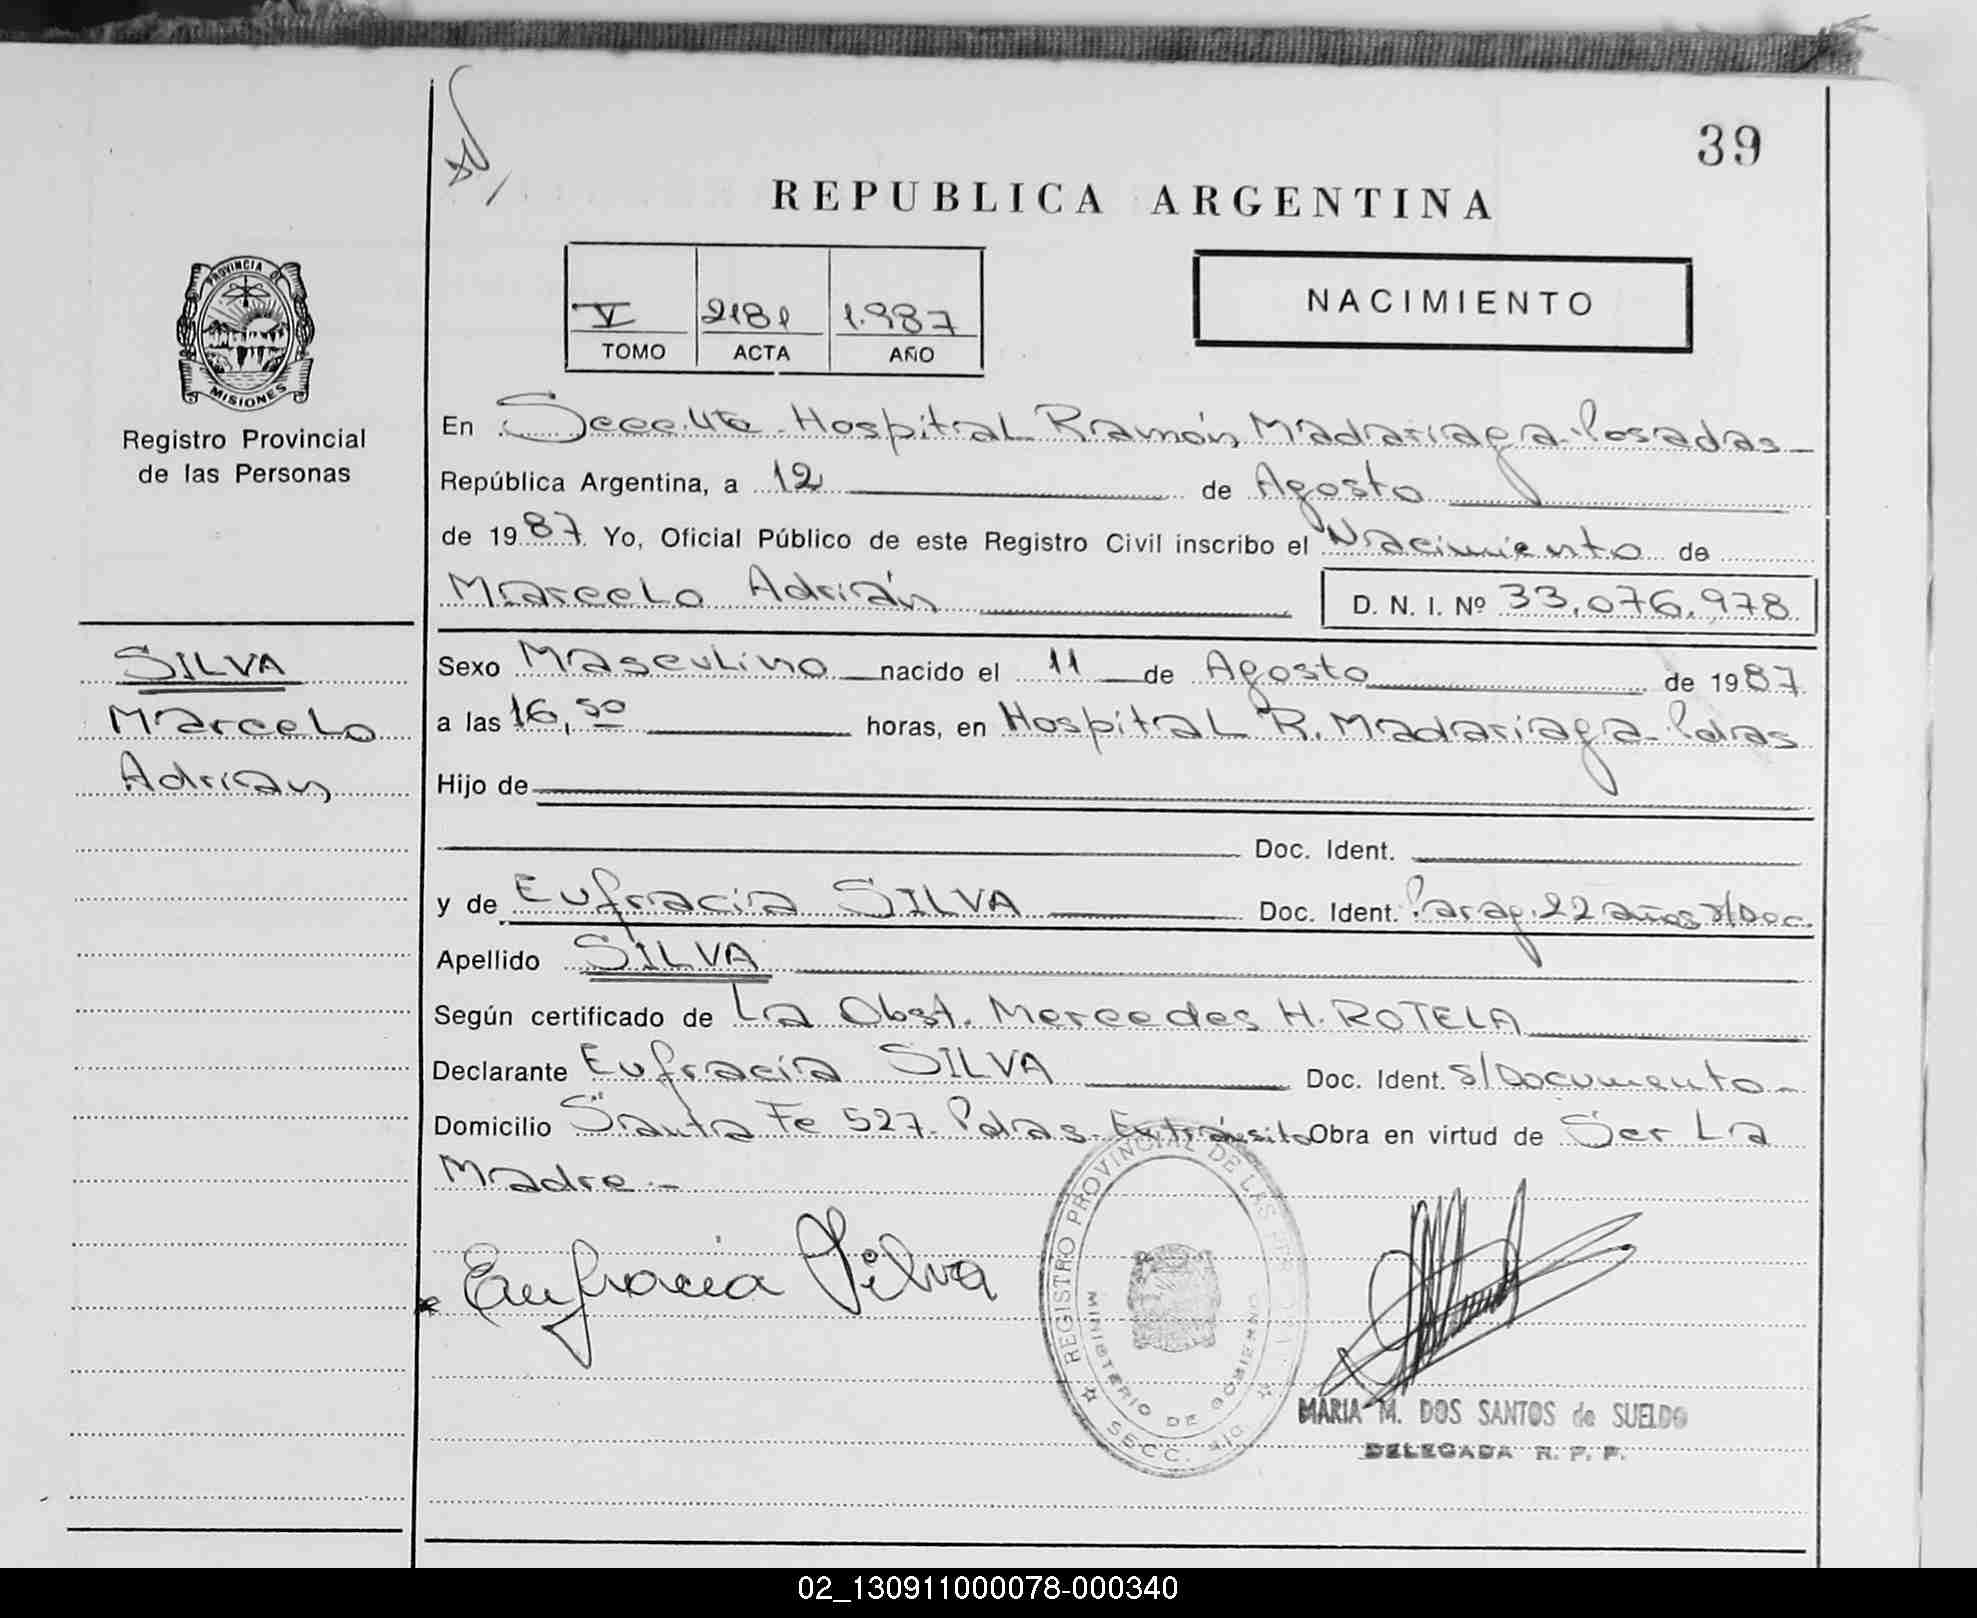 39
REPUBLICA ARGENTINA
PROVINCIA DE
MISIONES
Registro Provincial
de las Personas
V 2181 1.987
TOMO ACTA AÑO
NACIMIENTO
En Secc. 4ta Hospital Ramón Madariaga-Posadas-
República Argentina, a 12 de Agosto
de 1987 Yo, Oficial Público de este Registro Civil inscribo el Nacimiento de
Marcelo Adrián D. N. I. Nº 33.076.978
SILVA
Marcelo
Adrian
Sexo Masculino nacido el 11 de Agosto de 1987
a las 16,50 horas, en Hospital R. Madariaga-Pdas
Hijo de
Doc. Ident.
y de Eufracia SILVA Doc. Ident. Parag. 22 años s/Doc.
Apellido SILVA
Según certificado de La Obst. Mercedes H. ROTELA
Declarante Eufracia SILVA Doc. Ident. S/Documento-
Domicilio Santa Fe 527- Pdas- En tránsito Obra en virtud de Ser La
Madre.-
Eufracia Silva
REGISTRO PROVINCIAL DE LAS
MINISTERIO DE GOBIERNO
SECC. 4ta
MARIA M. DOS SANTOS de SUELDO
DELEGADA R. P. P.
02_130911000078-000340